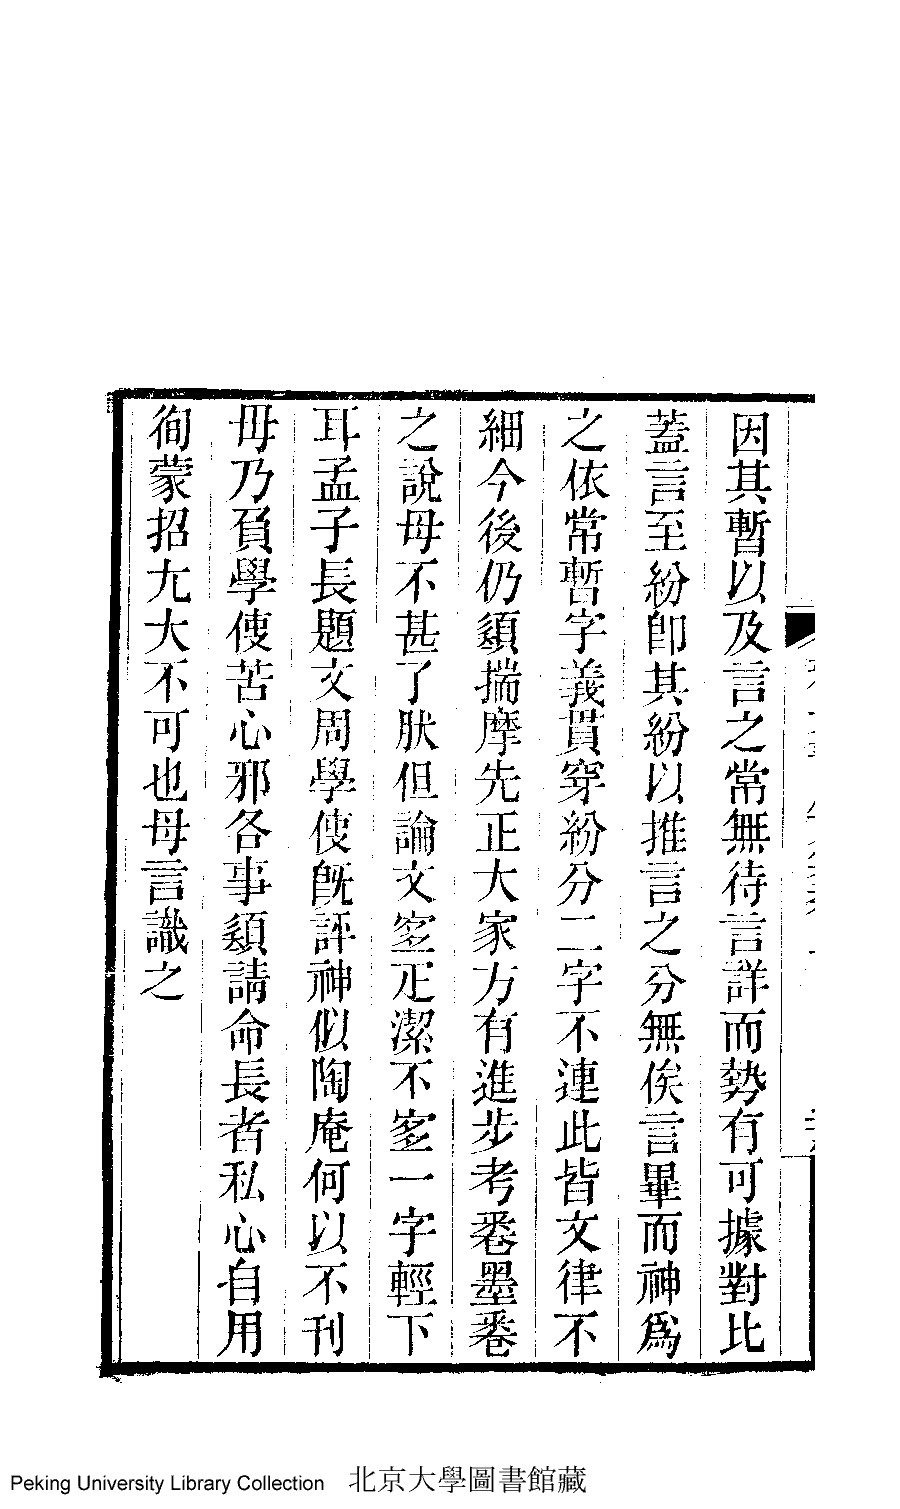 因其暫以及言之常無待言詳而勢有可據對比
蓋言至紛卽其紛以推言之分無俟言畢而神爲
之依常暫字義貫穿紛分二字不連此皆文律不
細今後仍須揣摩先正大家方有進步考卷墨卷
之說母不甚了肰但論文室疋潔不室一字輕下
耳孟子長題文周學使旣評神似陶庵何以不刊
毋乃負學使苦心邪各事須請命長者私心自用
徇蒙招尢大不可也母言識之
Peking University Library Collection 北京大學圖書館藏